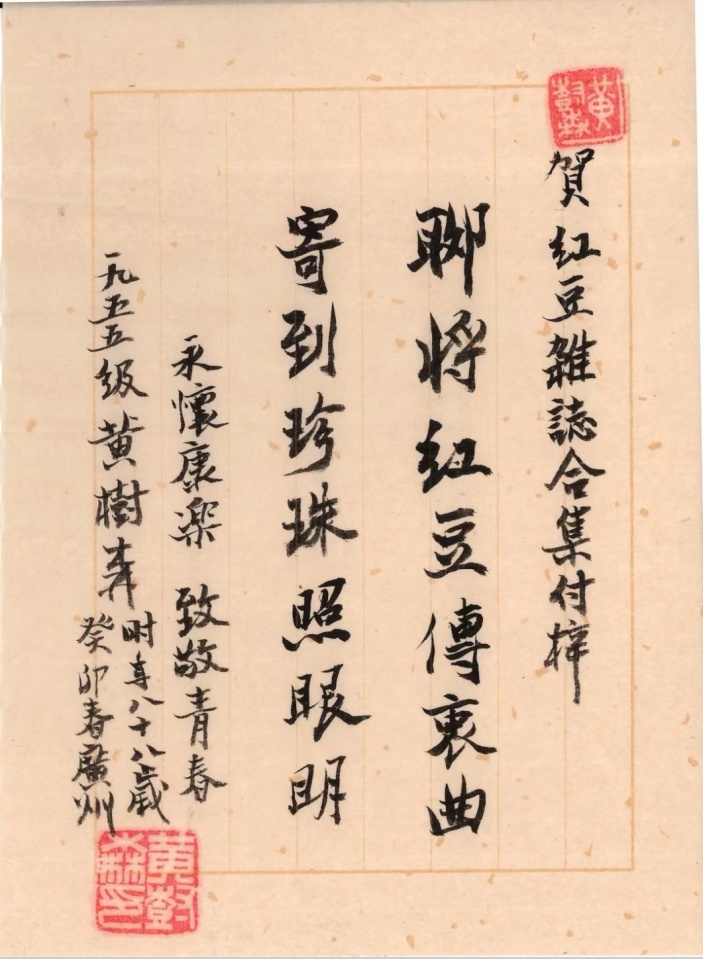 賀红豆雜誌合集付梓
聊将红豆傳衷曲
寄到珍珠照眼明
永懷康楽 致敬青春
一九五五级黄樹森
时年八十八歲
癸卯春廣州
黄樹森
黄樹森印